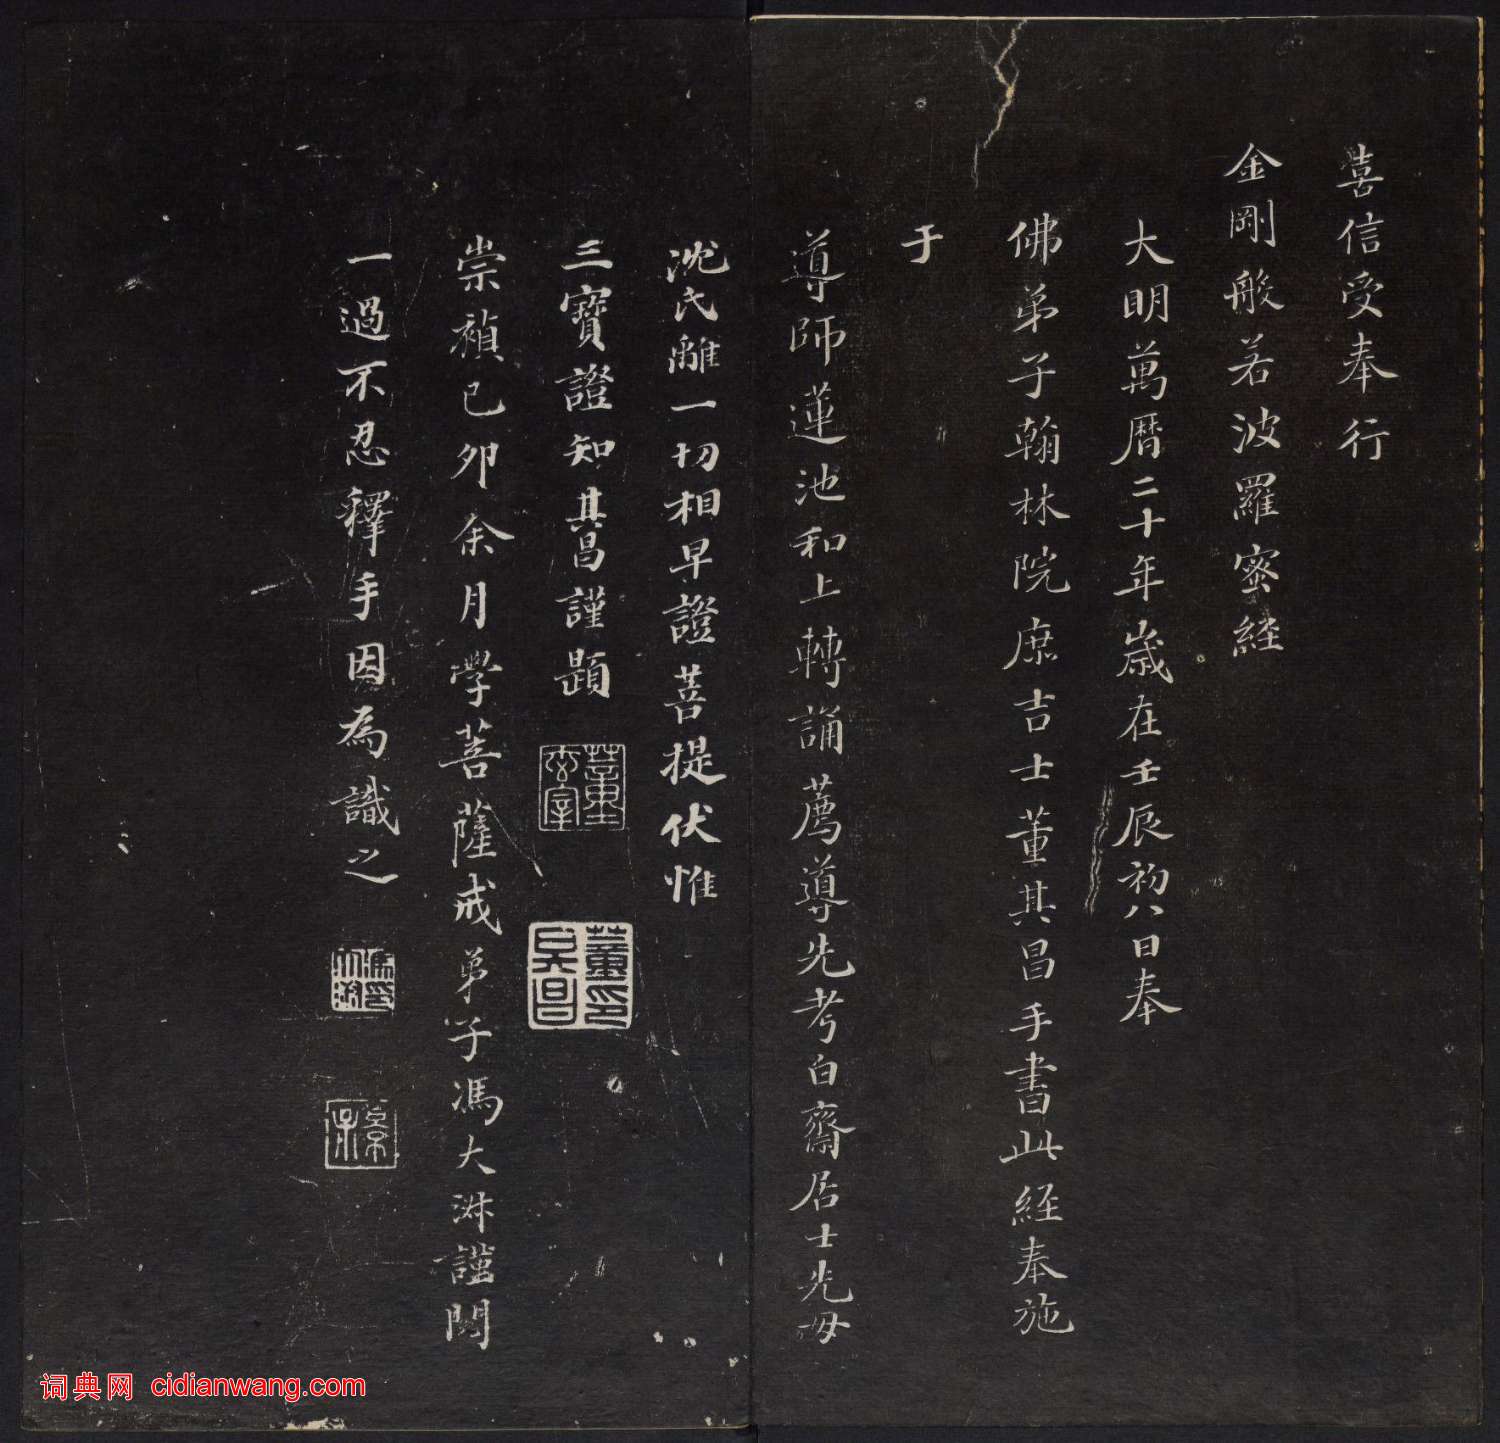 喜信受奉行
金剛般若波羅蜜經
大明萬曆二十年歲在壬辰初八日奉
佛弟子翰林院庶吉士董其昌手書此經奉施
于
導師蓮池和上轉誦薦導先考白齋居士先母
沈氏離一切相早證菩提伏惟
三寶證知其昌謹題
董太史
董印其昌
崇禎己卯余月學菩薩戒弟子馮大淋謹閱
一過不忍釋手因為識之
词典网 cidianwang.com